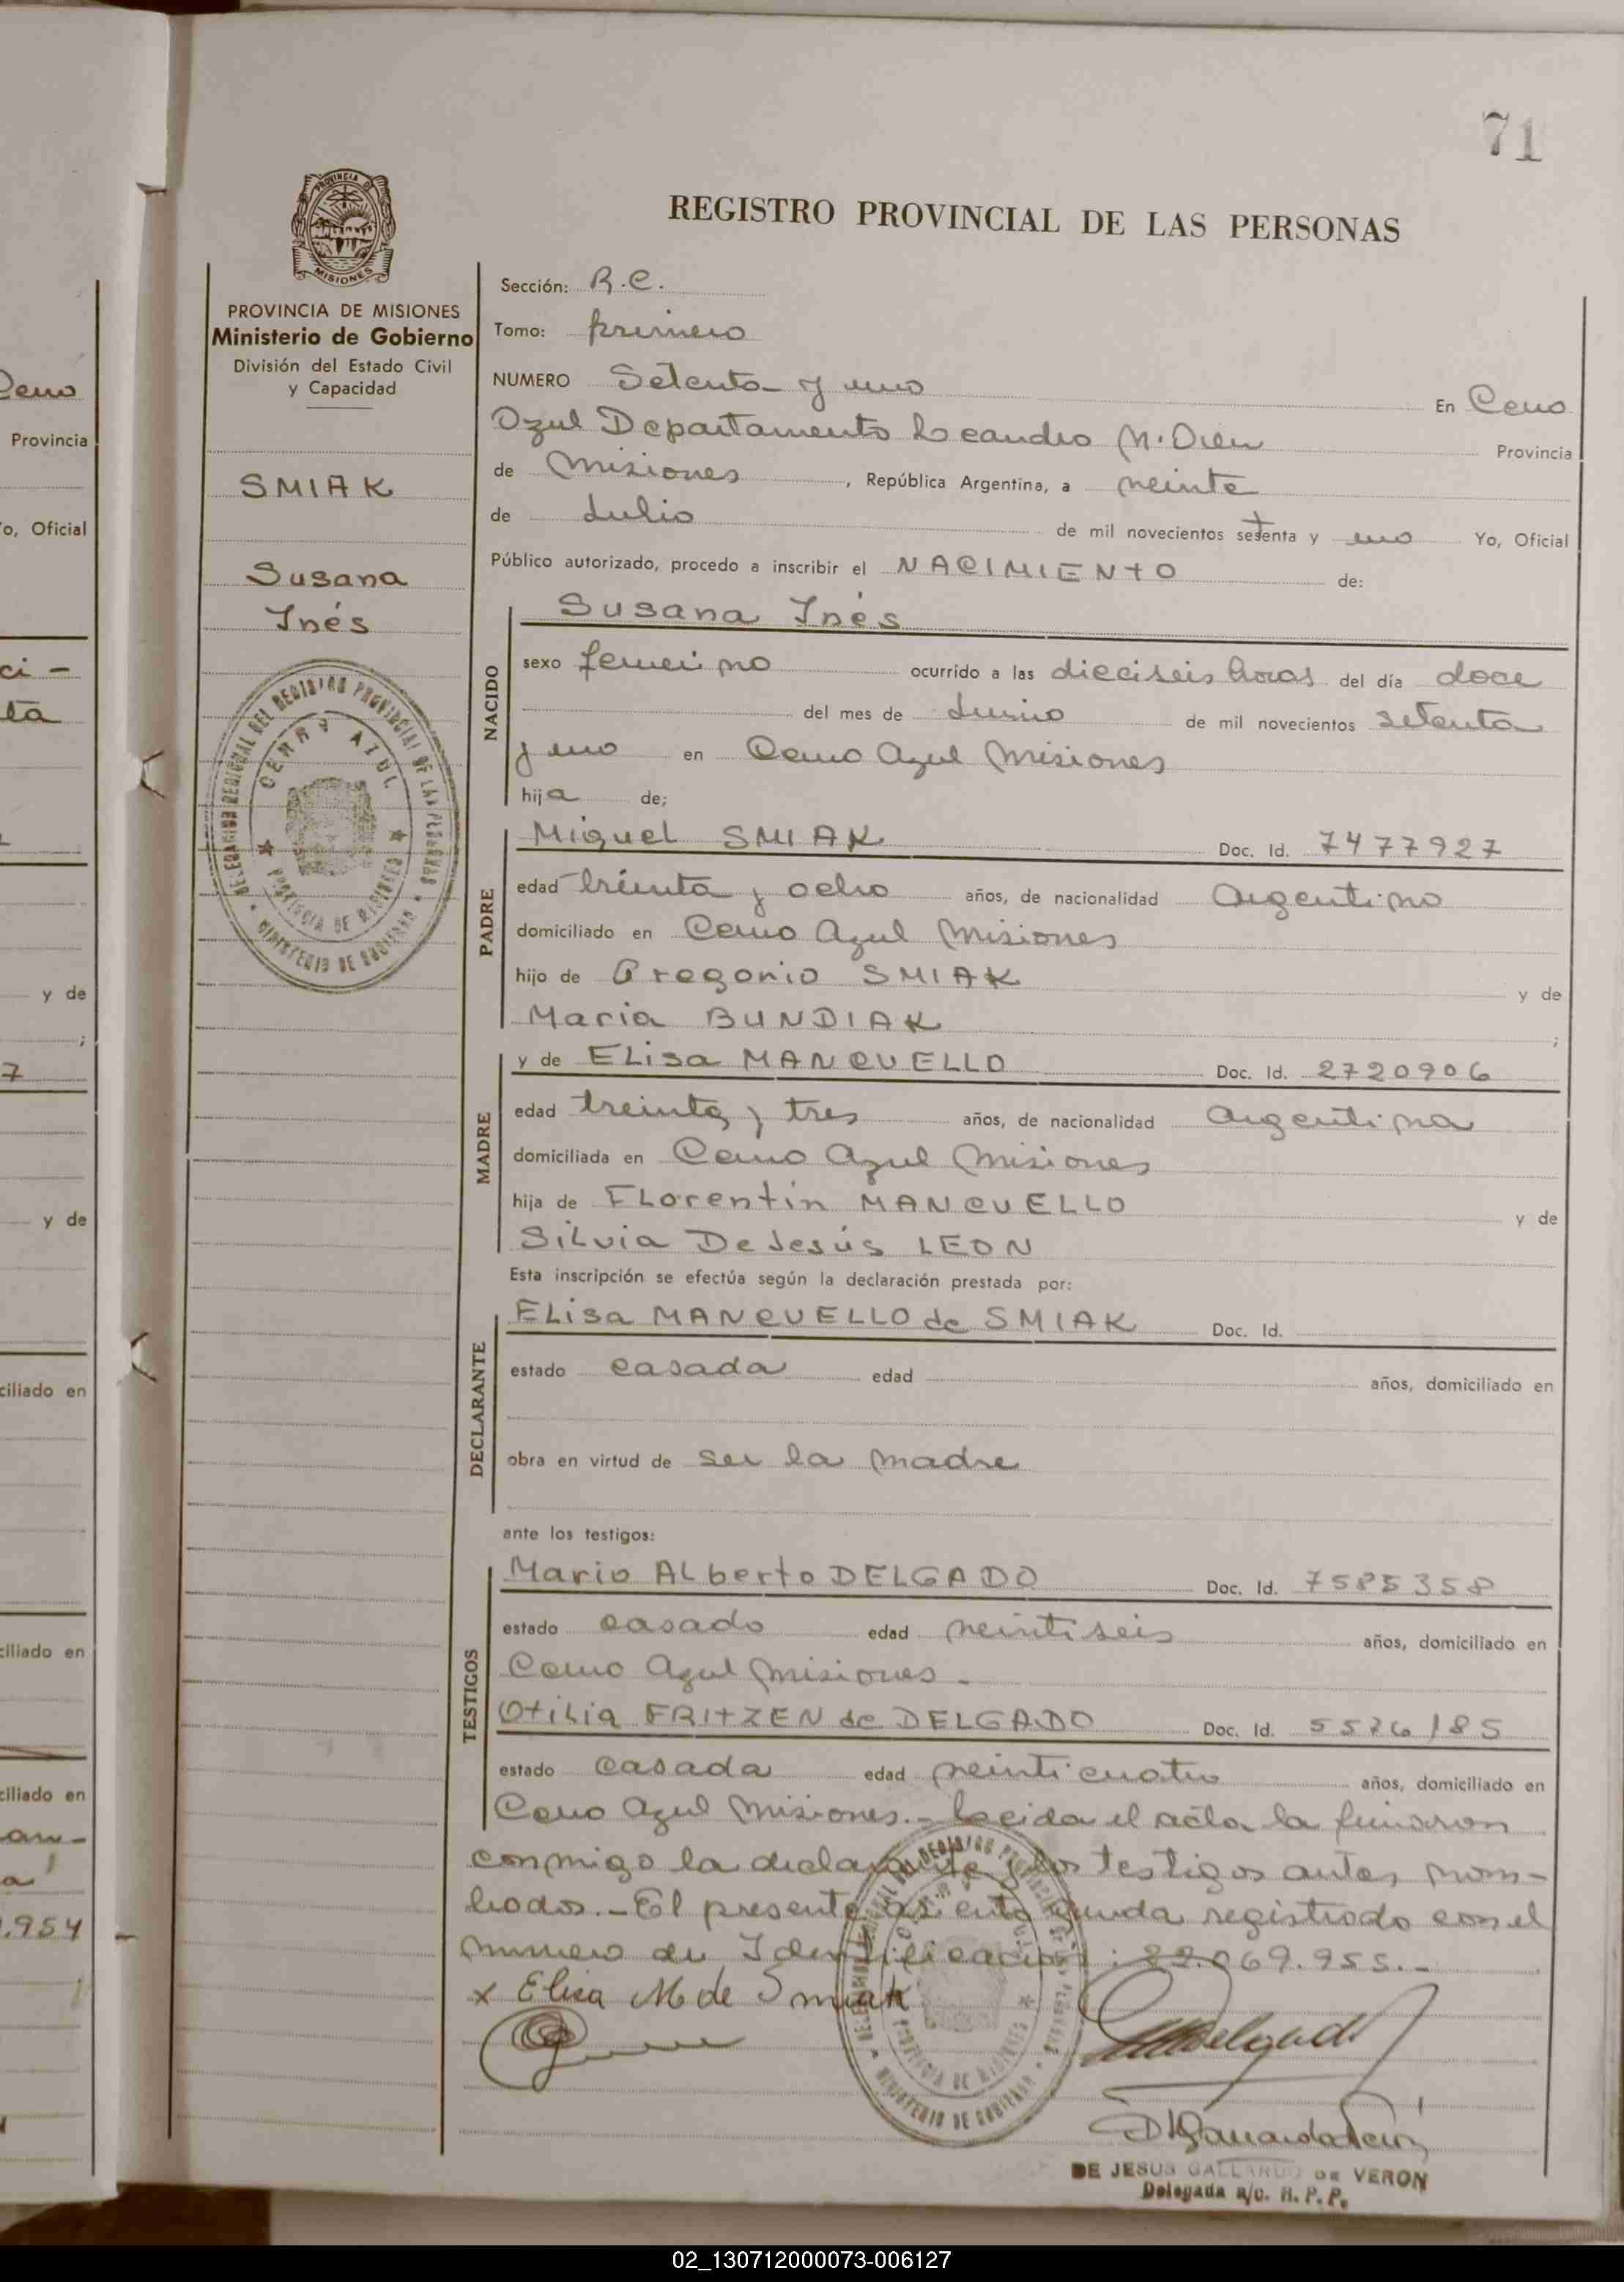 71
PROVINCIA DE MISIONES
Ministerio de Gobierno
División del Estado Civil
y Capacidad
SMIAK
Susana
Inés
DELEGACION REGIONAL DEL REGISTRO PROVINCIAL DE LAS PERSONAS
CERRO AZUL
PROVINCIA DE MISIONES
MINISTERIO DE GOBIERNO
REGISTRO PROVINCIAL DE LAS PERSONAS
Sección: R.C.
Tomo: primero
NUMERO Setenta y uno En Cerro
Azul Departamento Leandro N. Alem Provincia
de Misiones, República Argentina, a veinte
de Julio de mil novecientos setenta y uno Yo, Oficial
Público autorizado, procedo a inscribir el NACIMIENTO de:
NACIDO
Susana Inés
sexo femenino ocurrido a las dieciseis horas del día doce
del mes de Junio de mil novecientos setenta
y uno en Cerro Azul Misiones
hija de;
PADRE
Miguel SMIAK Doc. Id. 7477927
edad treinta y ocho años, de nacionalidad Argentino
domiciliado en Cerro Azul Misiones
hijo de Gregorio SMIAK y de
Maria BUNDIAK ;
MADRE
y de Elisa MANCUELLO Doc. Id. 2720906
edad treinta y tres años, de nacionalidad Argentina
domiciliada en Cerro Azul Misiones
hija de Florentín MANCUELLO y de
Silvia De Jesús LEON
Esta inscripción se efectúa según la declaración prestada por:
DECLARANTE
Elisa MANCUELLO de SMIAK Doc. Id.
estado casada edad años, domiciliado en
obra en virtud de ser la madre
ante los testigos:
TESTIGOS
Mario Alberto DELGADO Doc. Id. 7585358
estado casado edad veintiseis años, domiciliado en
Cerro Azul Misiones -
Otilia FRITZEN de DELGADO Doc. Id. 5576185
estado casada edad veinticuatro años, domiciliado en
Cerro Azul Misiones.- Leida el acta la firmaron
conmigo la declarante y los testigos antes nom-
brados.- El presente asiento queda registrado con el
numero de Identificacion: 22.069.955.-
x Elisa M de Smiak
DE JESUS GALLARDO DE VERON
Delegada a/c. R. P. P.
02_130712000073-006127